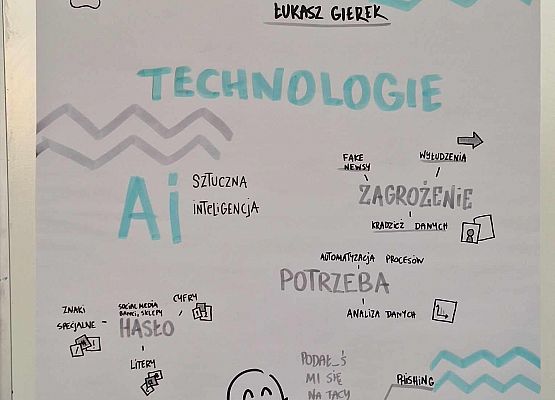 ŁUKASZ GIEREK
TECHNOLOGIE
Ai
SZTUCZNA
INTELIGENCJA
FAKE
NEWSY
WYŁUDZENIA
ZAGROŻENIE
KRADZIEŻ DANYCH
AUTOMATYZACJA PROCESÓW
POTRZEBA
ANALIZA DANYCH
ZNAKI
SPECJALNE
SOCIAL MEDIA
BANKI, SKLEPY
CYFRY
HASŁO
LITERY
PODAŁ_Ś
MI SIĘ
NA TACY
PHISHING